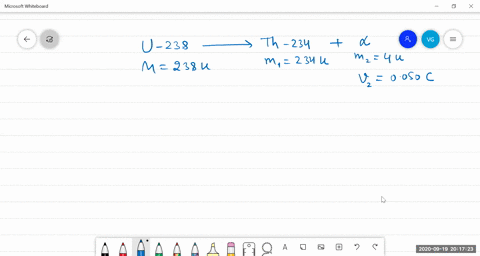 Microsoft Whiteboard
U-238 ⟶ Th-234 + α
M = 238 u m₁ = 234 u m₂ = 4 u
V₂ = 0.050 C
VG
A
2020-09-19 20:17:23